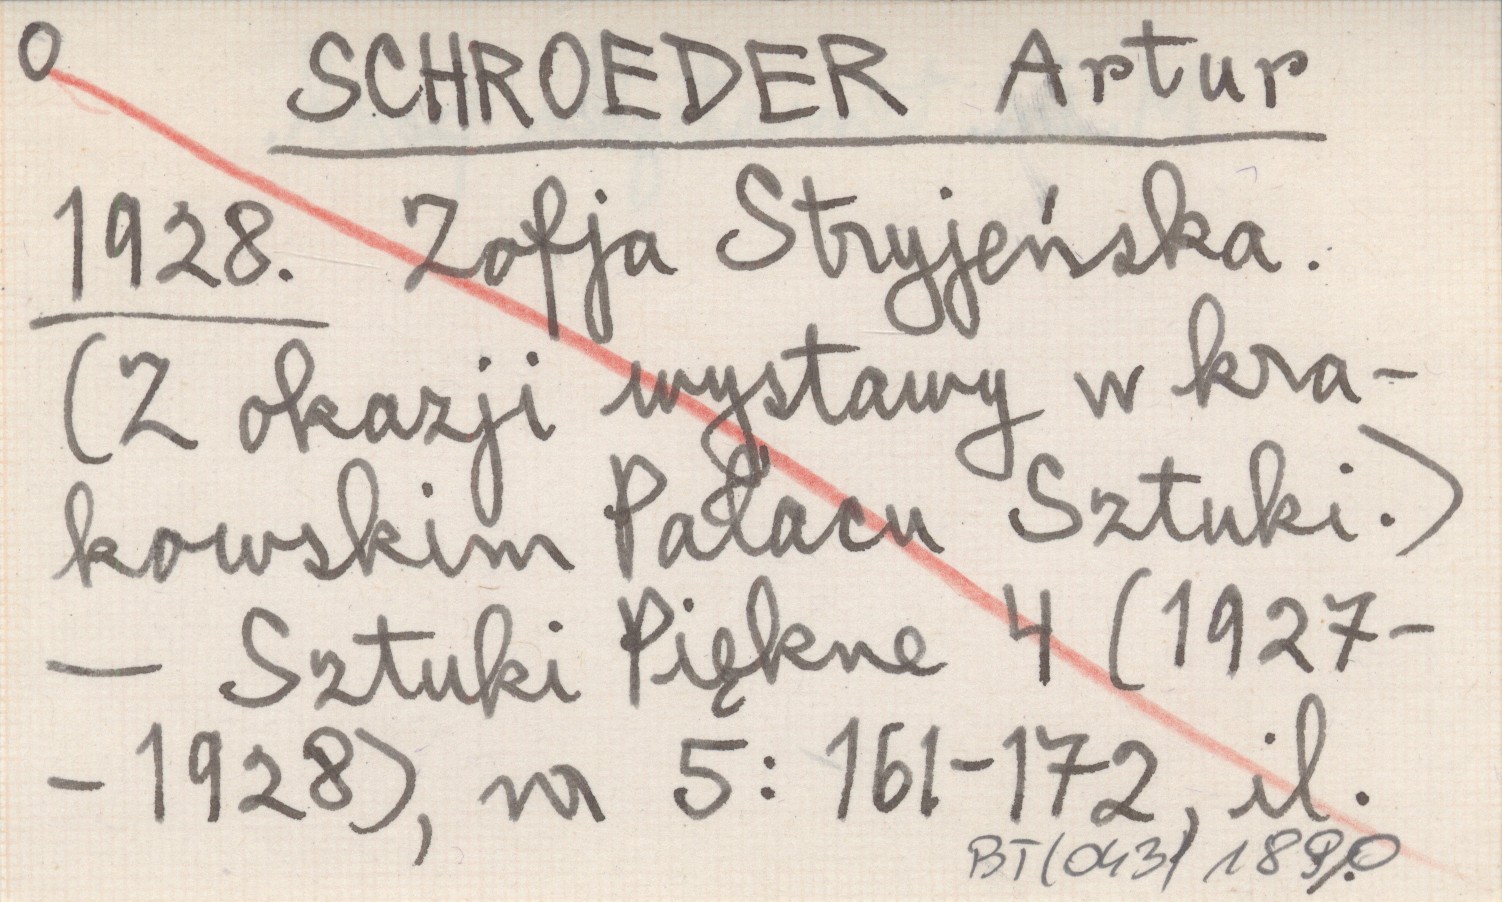 O SCHROEDER Artur
1928. Zofja Stryjeńska.
(Z okazji wystawy w kra-
kowskim Pałacu Sztuki.)
— Sztuki Piękne 4 (1927-
-1928), nr 5: 161-172, il.
BT(043)